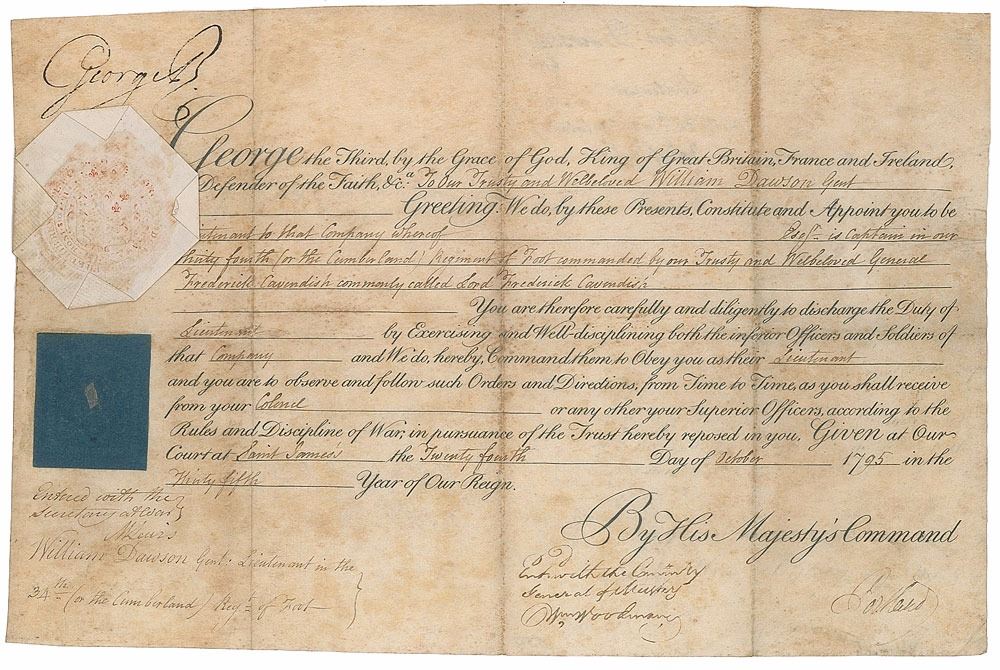 George R
George the Third, by the Grace of God, King of Great Britain, France and Ireland,
Defender of the Faith, &c.a To Our Trusty and Welbeloved William Dawson Gent
Greeting: We do, by these Presents, Constitute and Appoint you to be
Lieutenant to that Company whereof Esqr. is Captain in our
thirty fourth (or the Cumberland) Regiment of Foot commanded by our Trusty and Welbeloved General
Frederick Cavendish commonly called Lord Frederick Cavendish
You are therefore carefully and diligently to discharge the Duty of
Lieutenant by Exercising and Well-disciplining both the inferior Officers and Soldiers of
that Company and We do, hereby, Command them to Obey you as their Lieutenant
and you are to observe and follow such Orders and Directions, from Time to Time, as you shall receive
from your Colonel or any other your Superior Officers, according to the
Rules and Discipline of War, in pursuance of the Trust hereby reposed in you. Given at Our
Court at Saint James's the Twenty fourth Day of October 1795 in the
Thirty fifth Year of Our Reign.
By His Majesty's Command
Portland
Entered with the
Secretary at War
M Lewis
William Dawson Gent: Lieutenant in the
34th (or the Cumberland) Regt. of Foot
Entd. with the Comisy
General of Musters
Wm Woodman